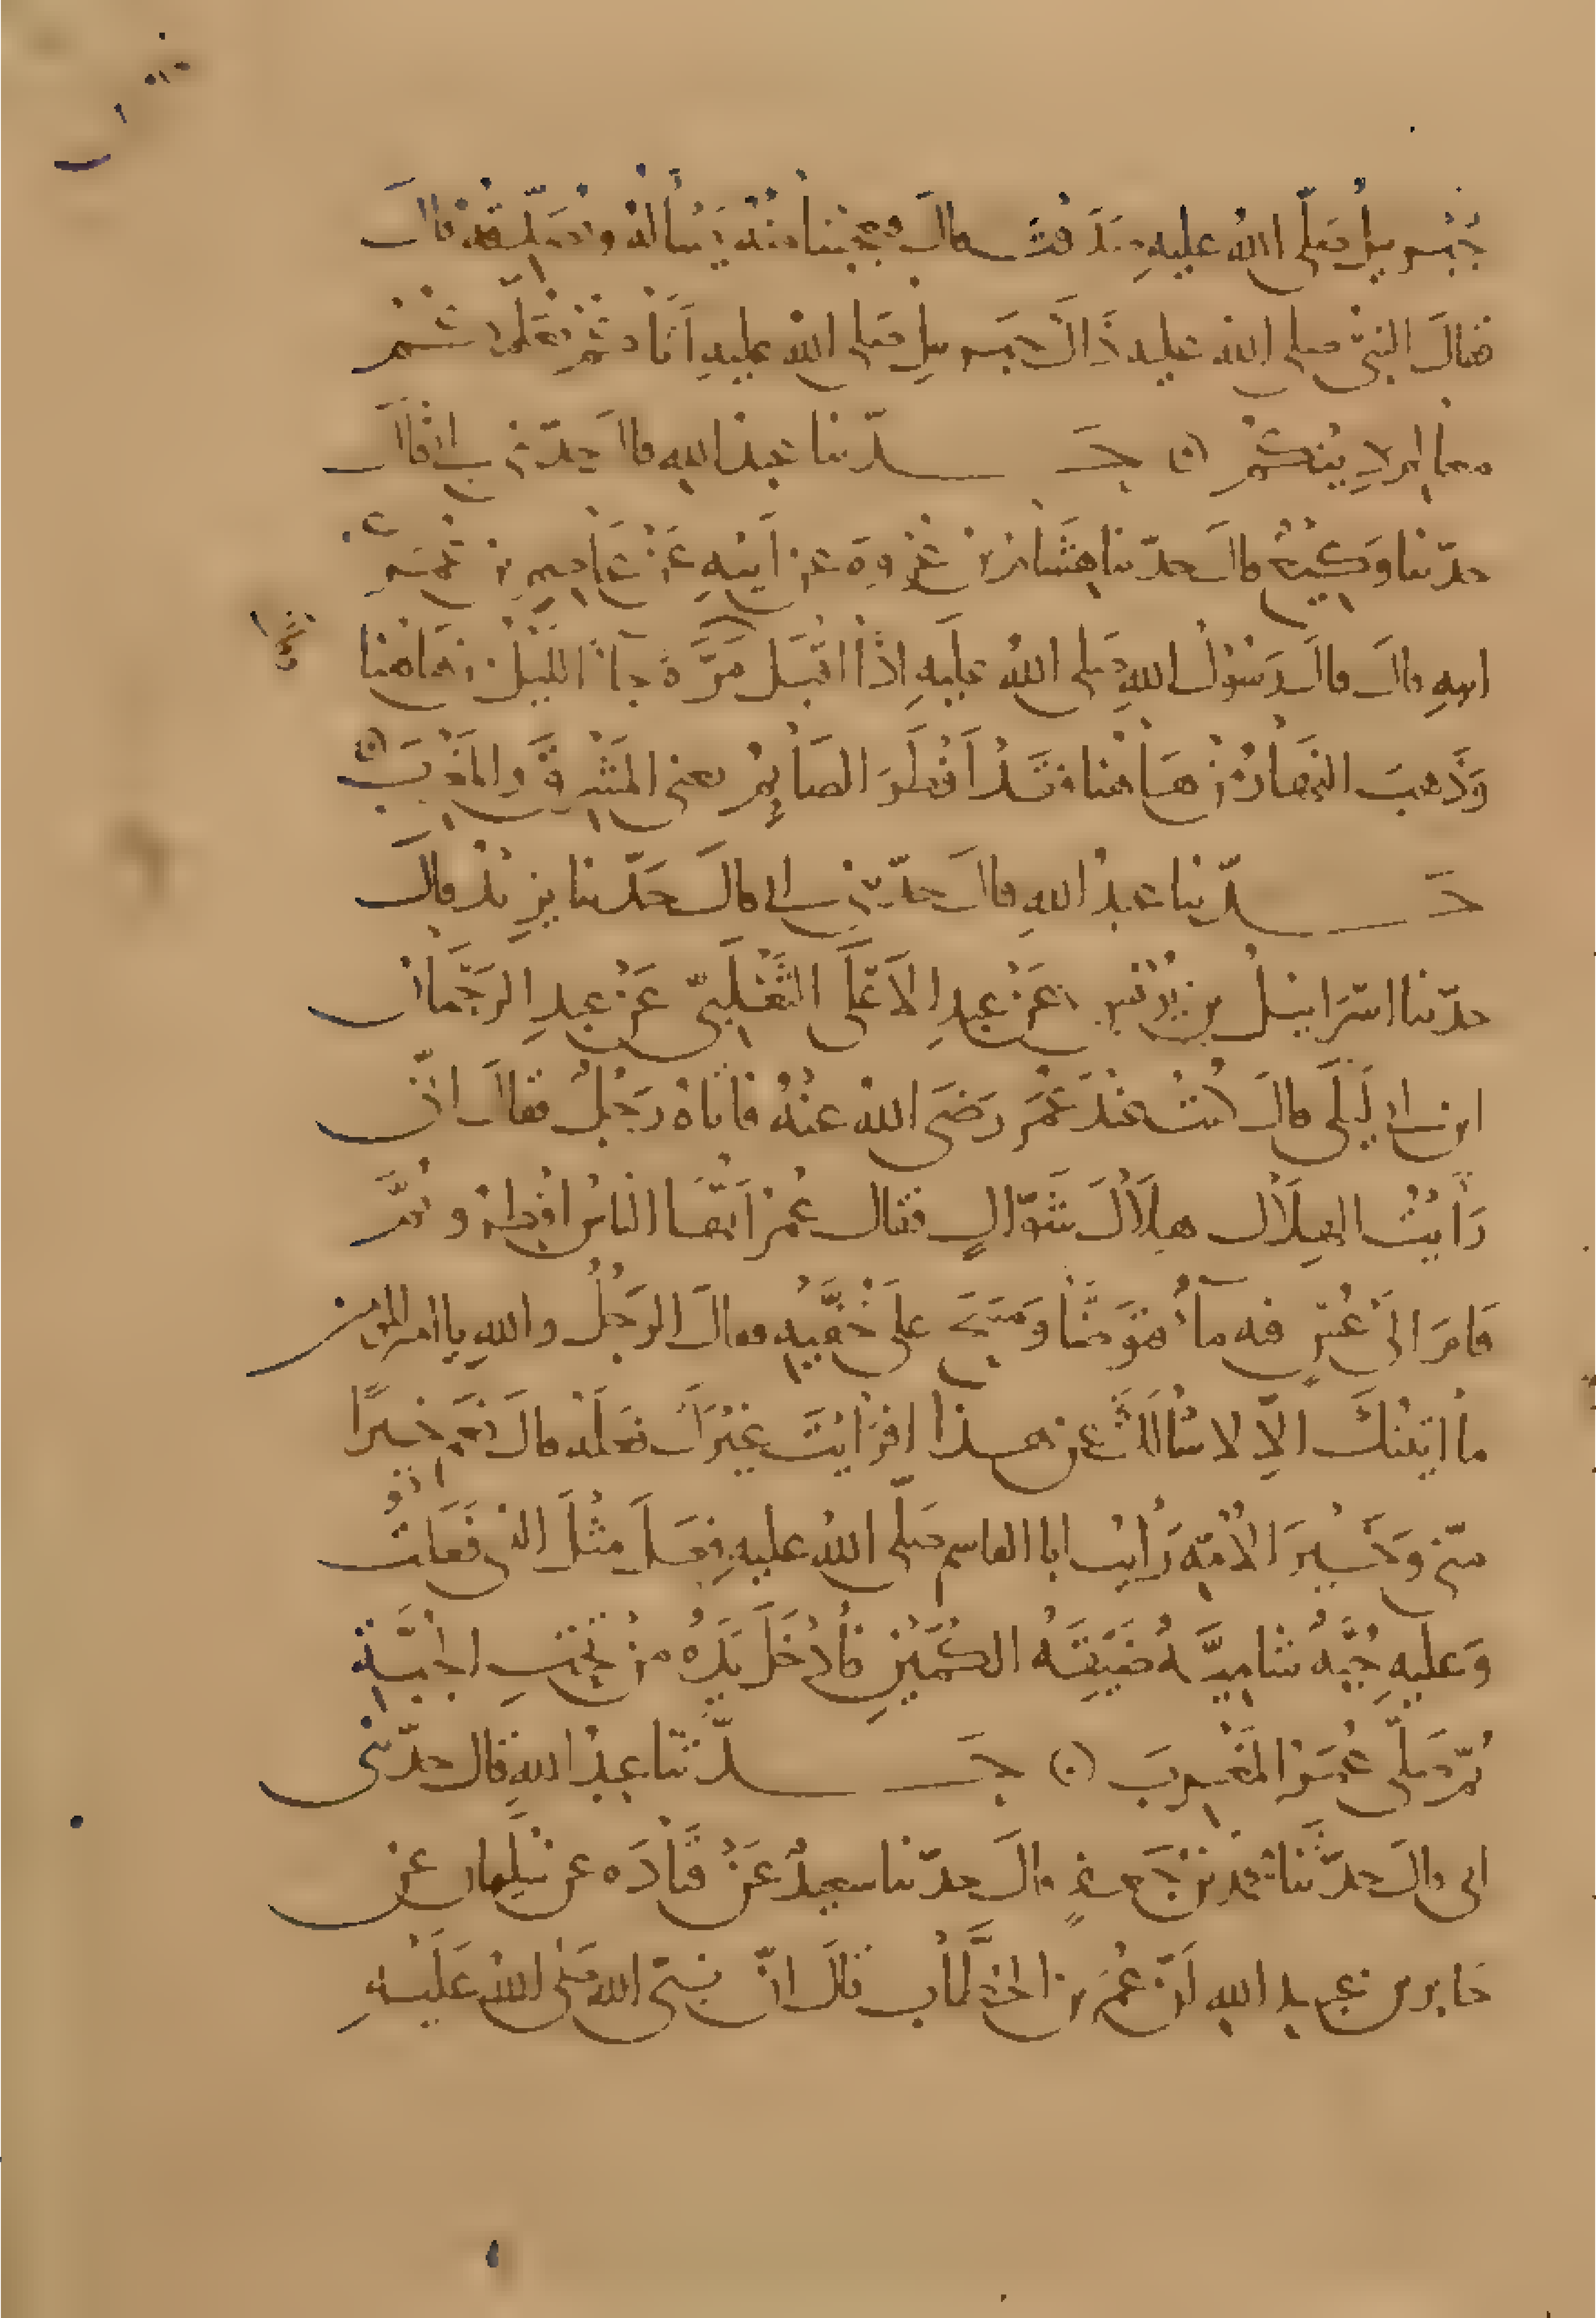 جبريل صلى الله عليه صدقت قال فعجبنا منه يسأله ويصدقه قال
فقال النبي صلى الله عليه ذاك جبريل صلى الله عليه اتاكم يعلمكم
معالم دينكم حدثنا عبد الله قال حدثني ابي قال
حدثنا وكيع قال حدثنا هشام بن عروة عن ابيه عن عاصم بن عمر عن
ابيه قال قال رسول الله صلى الله عليه اذا اقبل مرة جاء الليل من هاهنا
وذهب النهار من هاهنا فقد أفطر الصائم يعني المشرق والمغرب
حدثنا عبد الله قال حدثني ابي قال حدثنا يزيد قال
حدثنا اسرائيل بن يونس عن عبد الاعلى الثعلبي عن عبد الرحمان
ابن ابي ليلى قال كنت عند عمر رضي الله عنه فاتاه رجل فقال اني
رأيت الهلال هلال شوال فقال عمر أيها الناس افطروا ثم
قام الى عس فيه مآء فتوضأ ومسح على خفيه فقال الرجل والله يا امير المؤمنين
ما اتيتك الا لاسألك عن هذا افرأيت غيرك فعله قال نعم خيرا
مني وخير الأمة رأيت ابا القاسم صلى الله عليه فعل مثل الذي فعلت
وعليه جبة شامية ضيقة الكمين فأدخل يده من تحت الجبة
ثم صلى عمر المغرب حدثنا عبد الله قال حدثني
ابي قال حدثنا محمد بن جعفر قال حدثنا سعيد عن قتادة عن سليمان عن
جابر بن عبد الله أن عمر بن الخطاب قال ان نبي الله صلى الله عليه